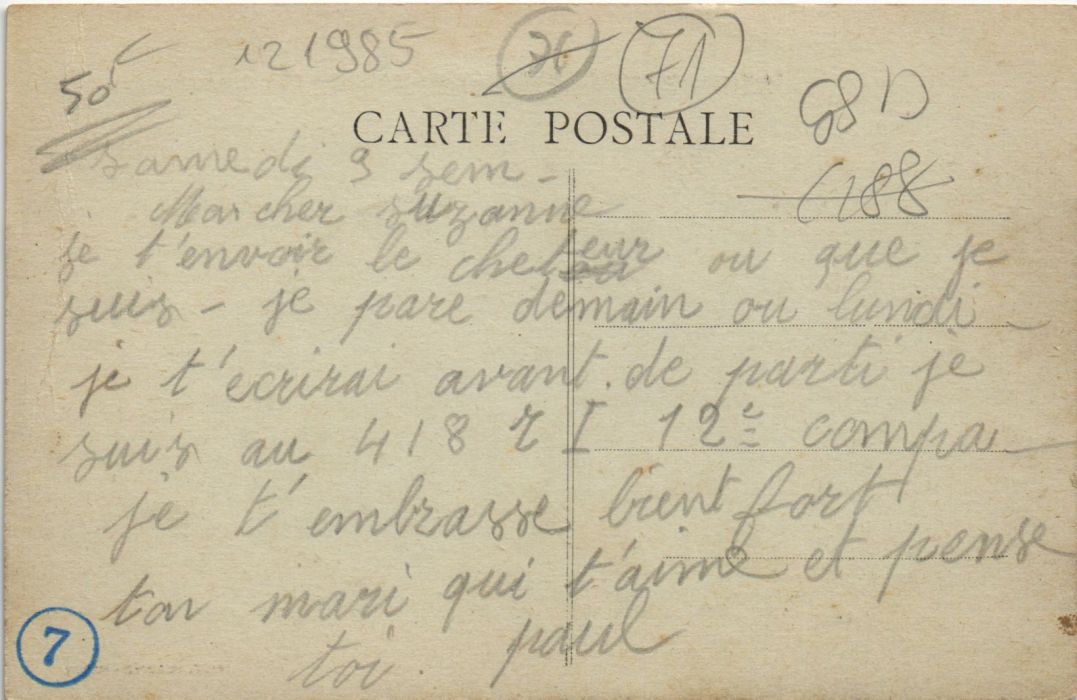 50 F
121985
71
71
88 D
188
CARTE POSTALE
samedi 9 sem -
Mar cher suzanne
je t'envoir le ou que je
suis - je pare demain ou lundi
je t'ecrirai avant de parti je
suis au 418 R I 12e compa
je t'embrasse bient fort
ton mari qui t'aime et pense
toi paul
7